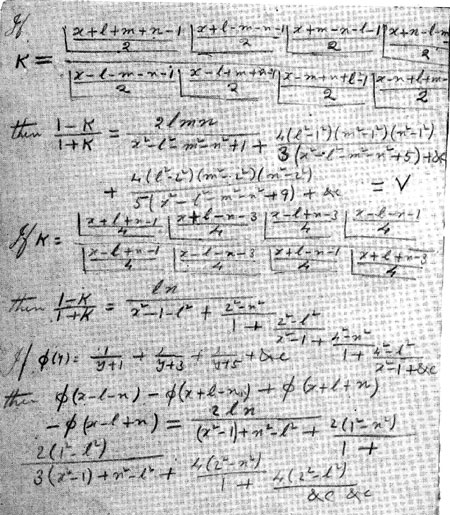 If
K = |(x+l+m+n-1)/2 |(x+l-m-n-1)/2 |(x+m-n-l-1)/2 |(x+n-l-m)/2
|(x-l-m-n-1)/2 |(x-l+m+n-1)/2 |(x-m+n+l-1)/2 |(x-n+l+m-)/2
then (1-K)/(1+K) = 2lmn/(x²-l²-m²-n²+1) + 4(l²-1²)(m²-1²)(n²-1²)/(3(x²-l²-m²-n²+5)+&c
+ 4(l²-2²)(m²-2²)(n²-2²)/5(x²-l²-m²-n²+9) + &c = V
If K = |(x+l+n-1)/4 |(x+l-n-3)/4 |(x-l+n-3)/4 |(x-l-n-1)/4
|(x-l+n-1)/4 |(x-l-n-3)/4 |(x+l-n-1)/4 |(x+l+n-3)/4
then (1-K)/(1+K) = ln/(x²-1-l²) + (2²-n²)/1 + (2²-l²)/(x²-1) + (4²-n²)/1 + (4²-l²)/(x²-1)+&c
If φ(y) = 1/(y+1) + 1/(y+3) + 1/(y+5) + &c
then φ(x-l-n) - φ(x+l-n) + φ(x+l+n)
- φ(x-l+n) = 2ln/((x²-1)+n²-l²) + 2(1²-n²)/1 +
2(1²-l²)/(3(x²-1)+n²-l²) + 4(2²-n²)/1 + 4(2²-l²)/&c &c